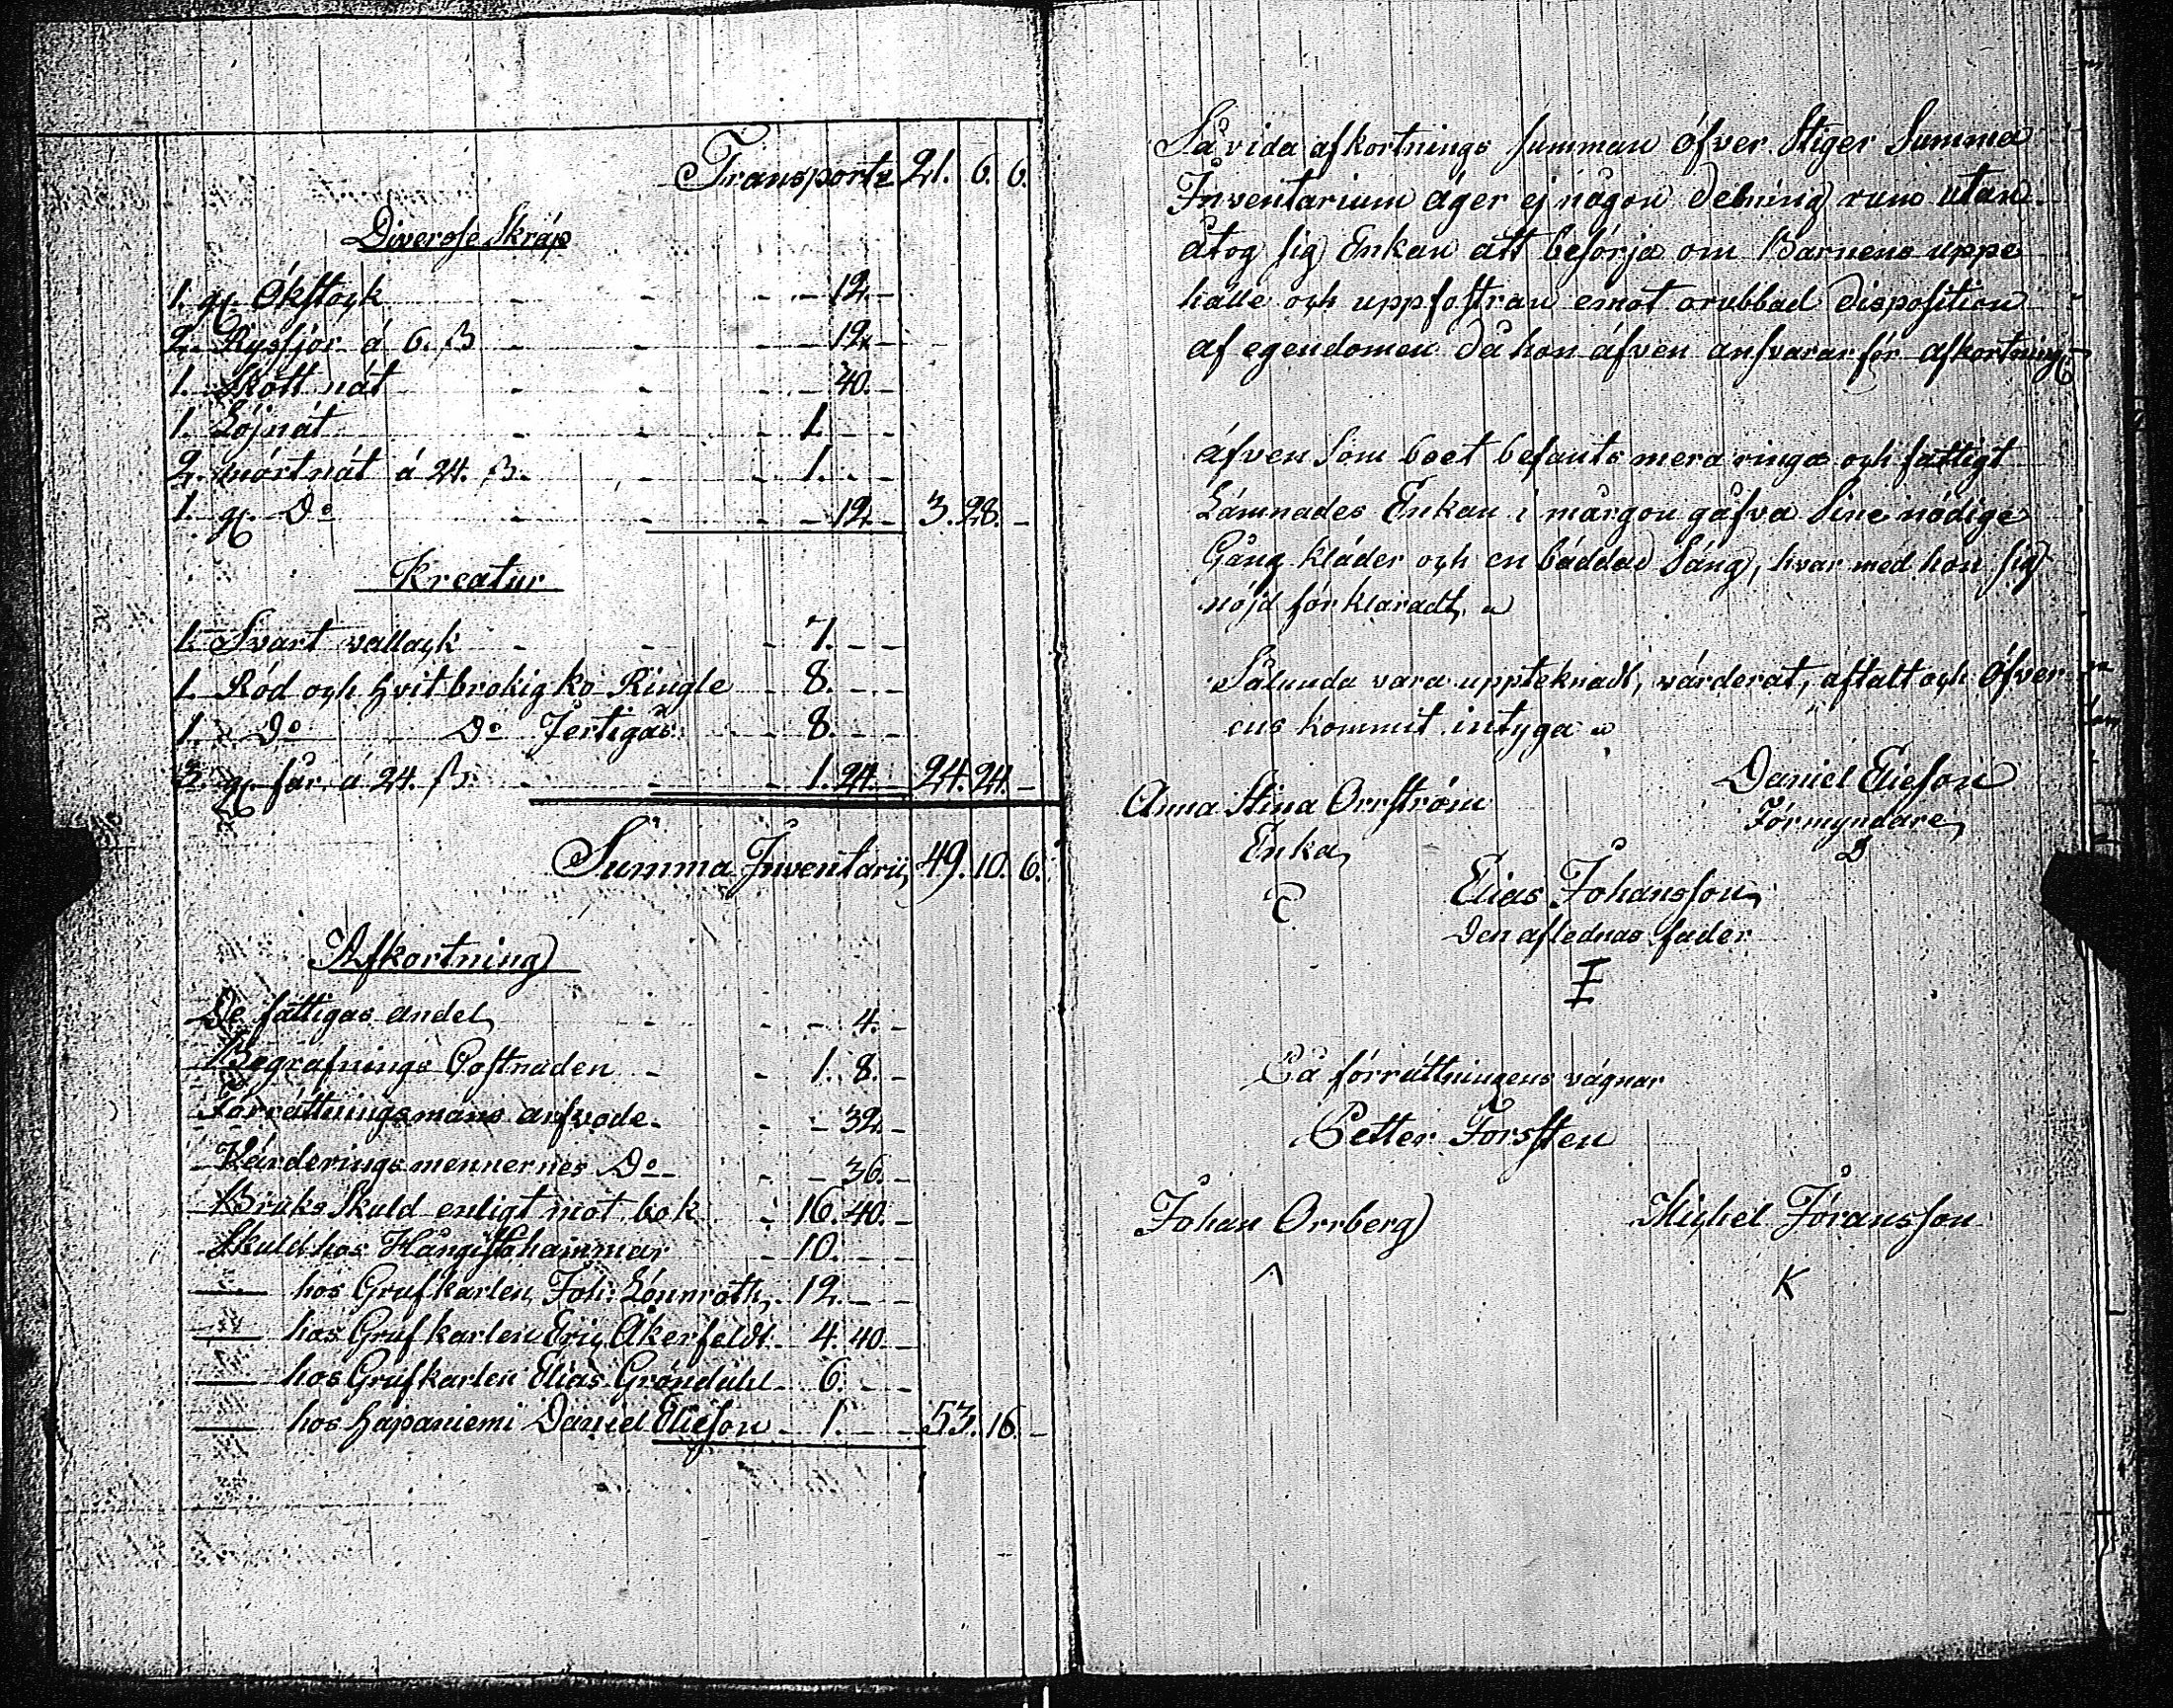 Transport 21. 6. 6.
Diverse Skräp
1. gl. Ökstock - - - 12. -
2. Ryssjor á 6. ß - - - 12. -
1. Skött nät - - - 40. -
1. Löjnät - - - 1. - -
2. mörtnät á 24. ß. - - 1. - -
1. gl. Do - - - 12. - 3. 28. -
Kreatur
1. Svart vallack - - - 7. - -
1. Röd och hvit brokig ko Ringle - 8. - -
1. Do Do Fertigås - - 8. - -
3. gl. får á 24. ß. - - - 1. 24. - 24. 24. -
Summa Inventarii, 49. 10. 6.
Afkortning
De fattigas andel - - - 4. -
Begrafnings Costnaden - - 1. 8. -
Förrättningsmans arfvode - - - 32. -
Värderingsmennernes Do - - - 36. -
Bruks Skuld enligt mot bok - 16. 40. -
Skuld hos - 10. - -
— hos Grufkarlen Joh: Lönnroth, - 12. - -
— hos Grufkarlen Eric Åkerfeldt - 4. 40. -
— hos Grufkarlen Elias Gröndahl - 6. - -
— hos Hapaniemi Daniel Elieson - 1. - - 53. 16. -
Såvida afkortnings summan öfver Stiger Summa
Inventarium äger ej någon delning rum utan
åtog sig Enkan att besörja om Barnens uppe
hälle och uppfostran emot orubbad disposition
af egendomen då hon äfven ansvarar för afkortning
äfven Som boet befants mera ringa och fattigt
Lämnades Enkan i morgon gåfva Sine nödige
Gång kläder och en bäddad Säng, hvar med hon sig
nöjd förklaradt,
Sålunda vara uppteknadt, värderat, aftalt och öfver
ens kommit intyga
Daniel Elieson
Förmyndare
D
Anna Stina Orrström
Enka
Elias Johansson
Den aflednas fader
I
På förrättningens vägnar
Petter Forssten
Johan Orrberg
Michel Göransson
K